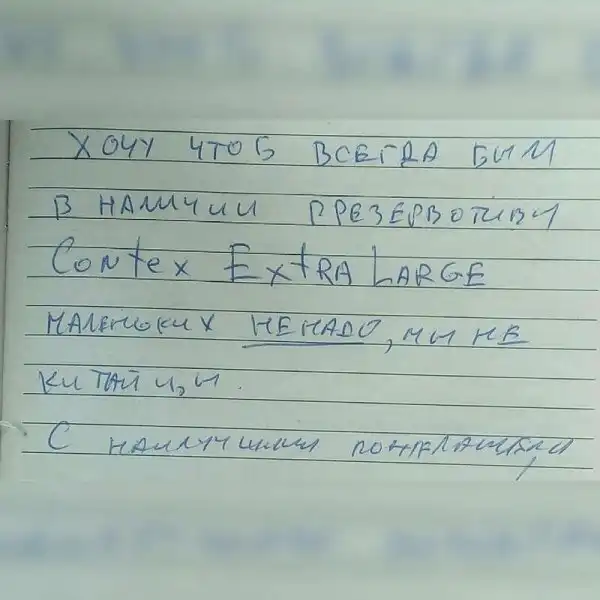 ХОЧУ ЧТОБ ВСЕГДА БЫЛ
В НАЛИЧИИ ПРЕЗЕРВОТИВЫ
Contex Extra Large
МАЛЕНЬКИХ НЕНАДО, МЫ НЕ
КИТАЙЦЫ.
С НАИЛУЧШИМИ ПОЖЕЛАНИЯМИ